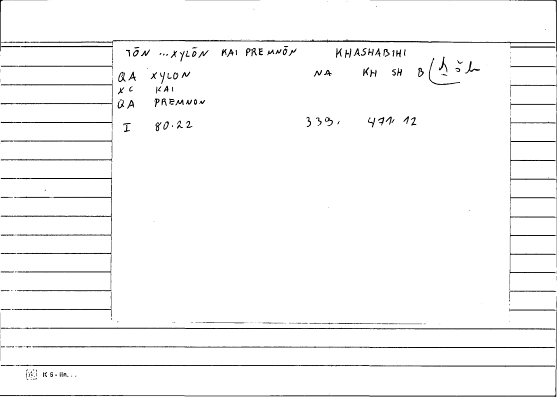 TŌN ...XYLŌN KAI PREMNŌN KHASHABIHI
QA XYLON NA KH SH B
XC KAI
QA PREMNON
I 80.22 339. 471. 12